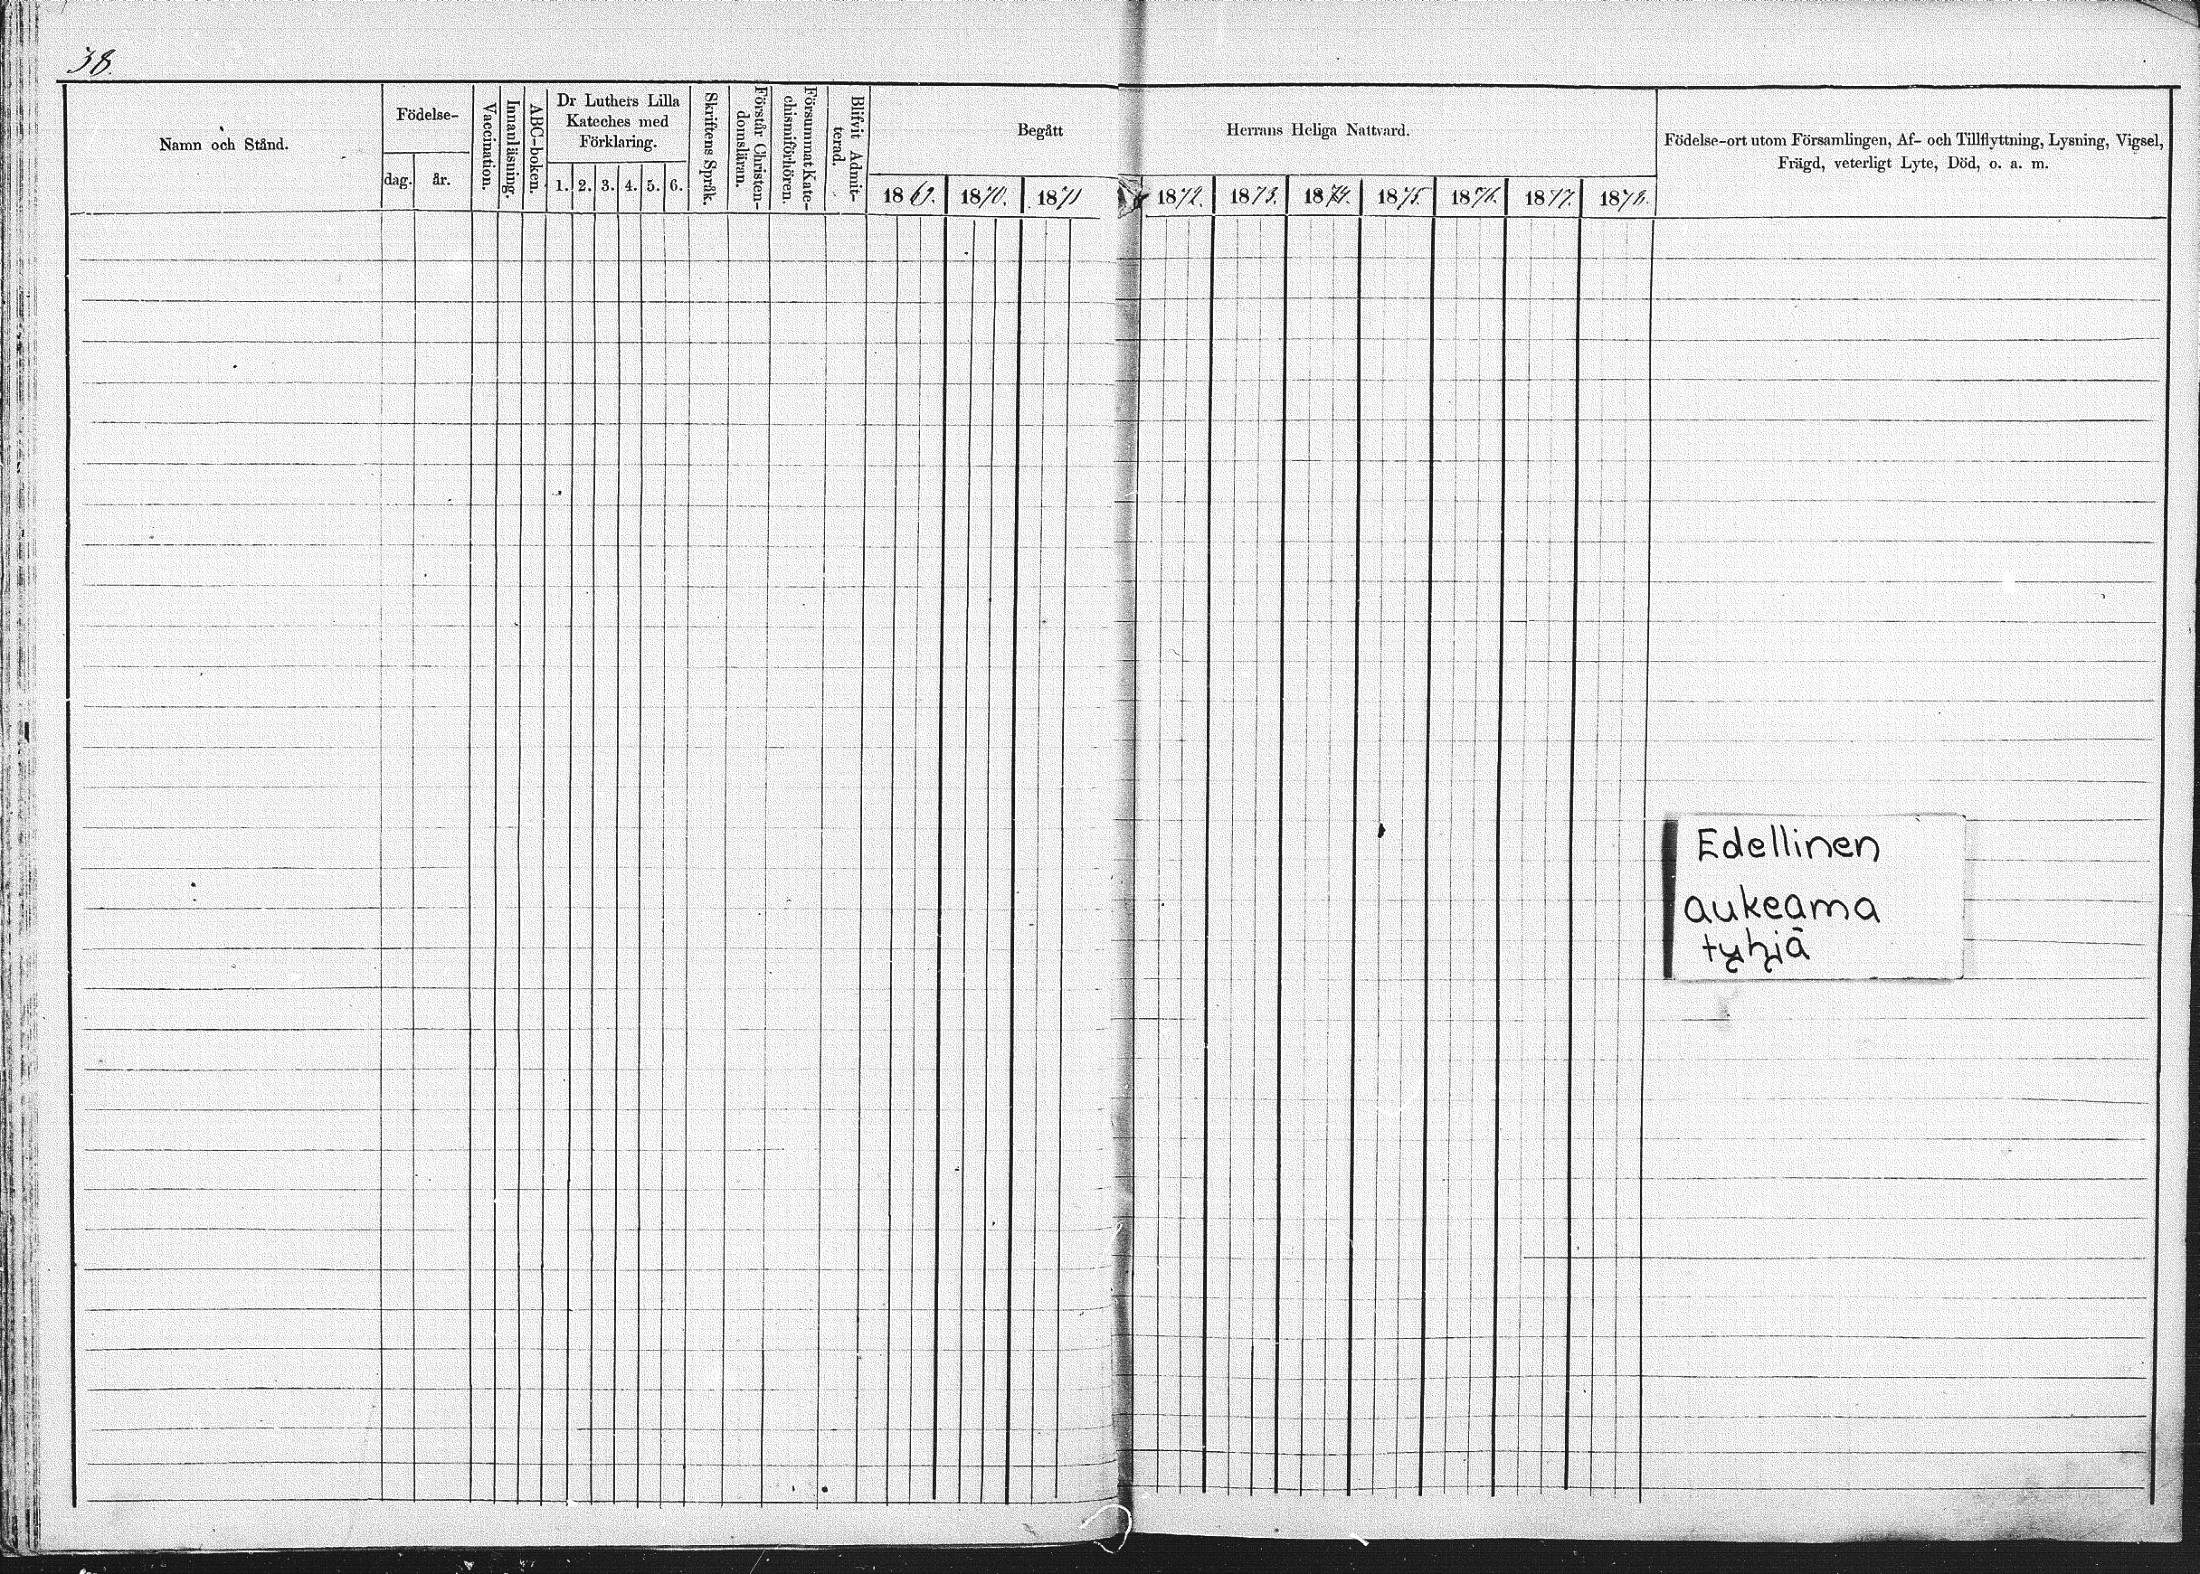 38.
Namn och Stånd.
Födelse-
dag. år.
Vaccination.
Innanläsning.
ABC-boken.
Dr Luthers Lilla
Kateches med
Förklaring.
1. 2. 3. 4. 5. 6.
Skriftens Språk.
Förstår Christen-
domsläran.
Försummat Kate-
chismiförhören.
Blifvit Admit-
terad.
Begått Herrans Heliga Nattvard.
1869. 1870. 1871 1872. 1873. 1874. 1875. 1876. 1877. 1878.
Födelse-ort utom Församlingen, Af- och Tillflyttning, Lysning, Vigsel,
Frägd, veterligt Lyte, Död, o. a. m.
Edellinen
aukeama
tyhjä